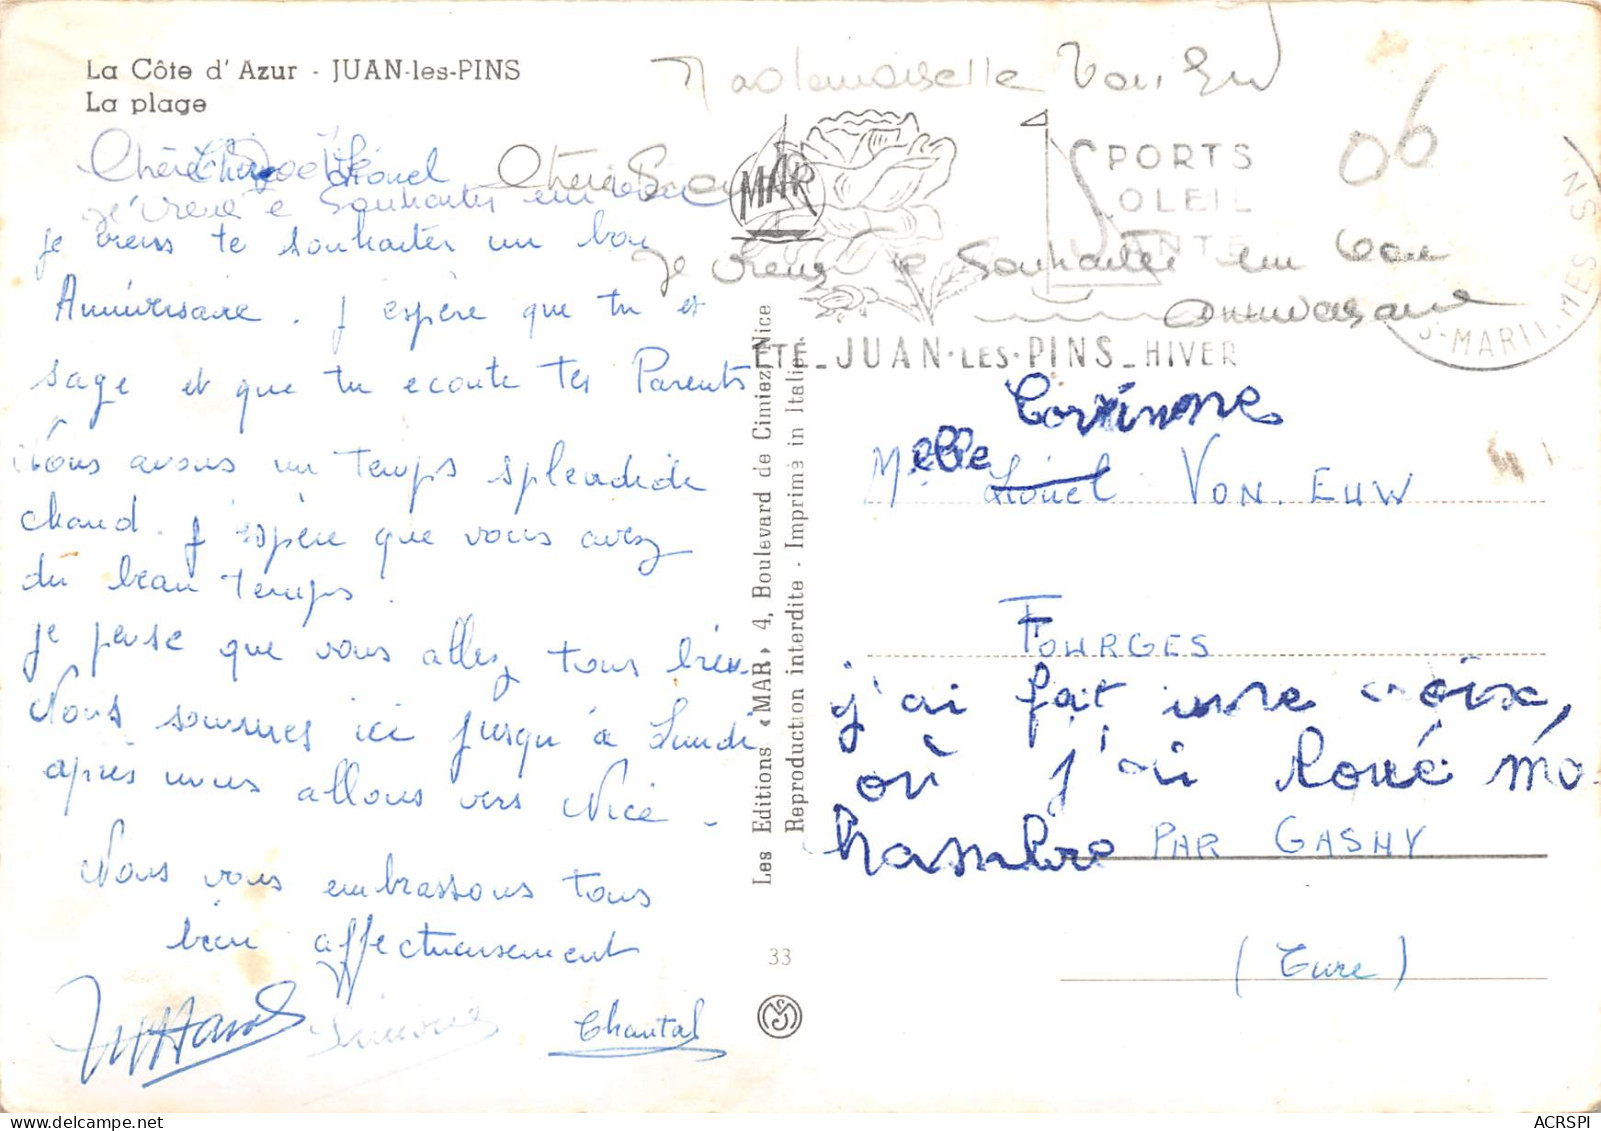 La Côte d'Azur - JUAN-les-PINS
La plage
Chère
Lionel
Chérie
je viens te souhaiter un bon
Anniversaire. J'espère que tu es
sage et que tu ecoute tes Parents
Nous avons un temps splendide
chaud. J'espère que vous avez
du beau temps.
je pense que vous allez tous bien.
Nous sommes ici jusqu'à Lundi
après nous allons vers Nice.
Nous vous embrassons tous
bien affectueusement
Simone
Chantal
Les Editions «MAR» 4, Boulevard de Cimiez, Nice
Reproduction interdite - Imprimé in Italie
33
MAR
Mademoiselle Von Euw
06
SPORTS
SOLEIL
SANTE
Je viens te souhaiter un bon
anniversaire
ÉTÉ _ JUAN·LES·PINS _ HIVER
Corinne
Melle Lionel VON. EUW
FOURGES
j'ai fait une croix,
où j'ai loué ma
chambre
PAR GASNY
(Eure)
ACRSPI